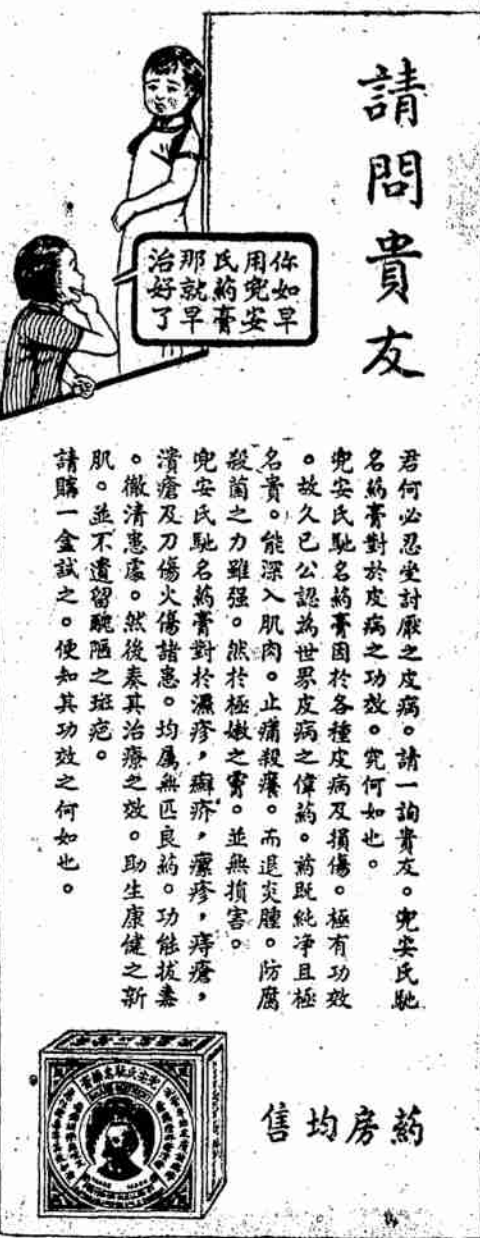 請問貴友
你如早
用兜安
氏藥膏
那就早
治好了
君何必忍坐討厭之皮病。請一詢貴友。兜安氏馳
名藥膏對於皮病之功效。究何如也。
兜安氏馳名藥膏固於各種皮病及損傷。極有功效
。故久已公認為世界皮病之偉药。药既純净且極
名貴。能深入肌肉。止痛殺癢。而退炎腫。防腐
殺菌之力雖强。然於極嫩之膚。並無損害。
兜安氏馳名藥膏對於濕疹，癬疥，瘰疹，痔瘡，
潰瘡及刀傷火傷諸患。均屬無匹良药。功能拔毒
。徹清患處。然後奏其治療之效。助生康健之新
肌。並不遺留醜陋之斑疤。
請購一盒試之。便知其功效之何如也。
药房均售